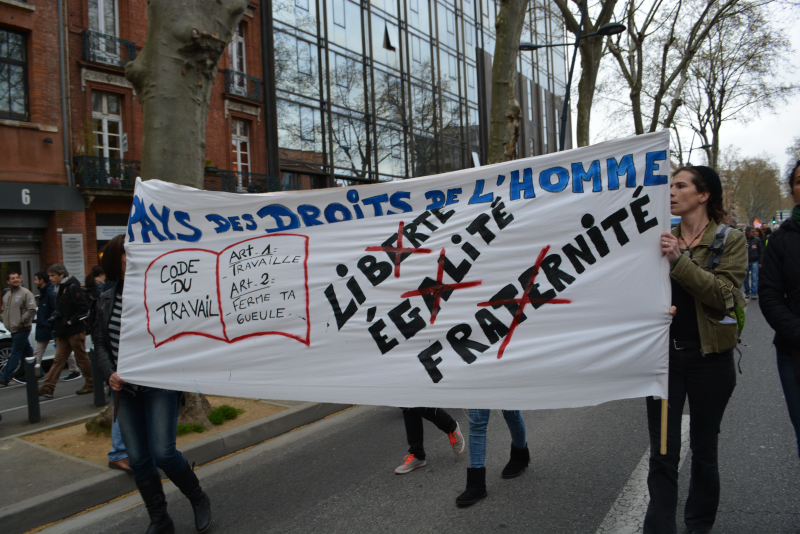 PAYS DES DROITS DE L'HOMME
CODE
DU
TRAVAIL
ART. 1:
- TRAVAILLE
ART. 2:
- FERME TA
GUEULE.
LIBERTÉ
ÉGALITÉ
FRATERNITÉ
6